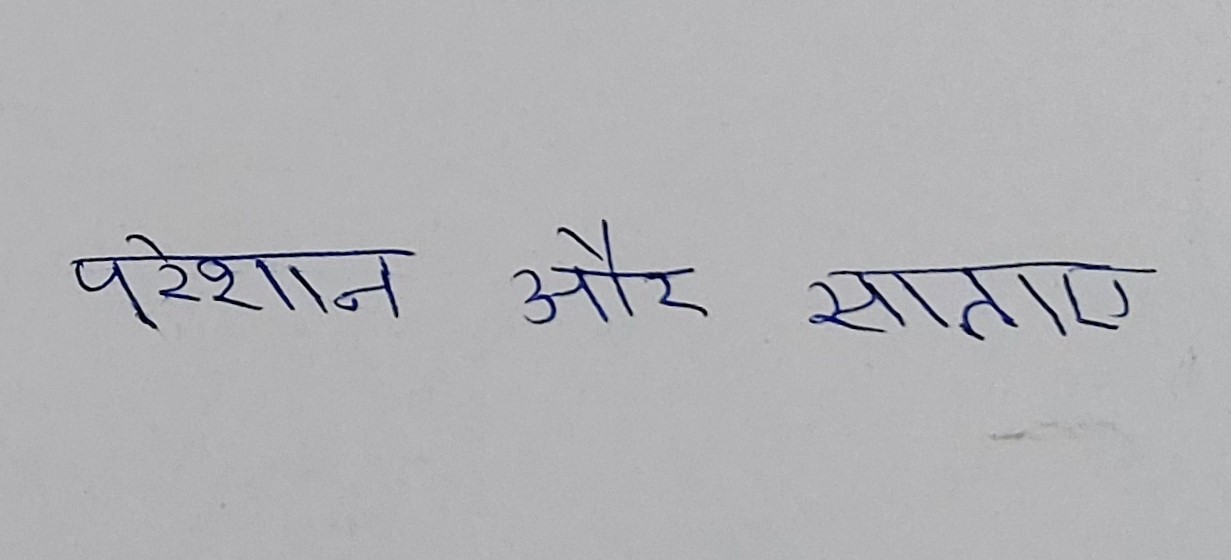 परेशान और साताए